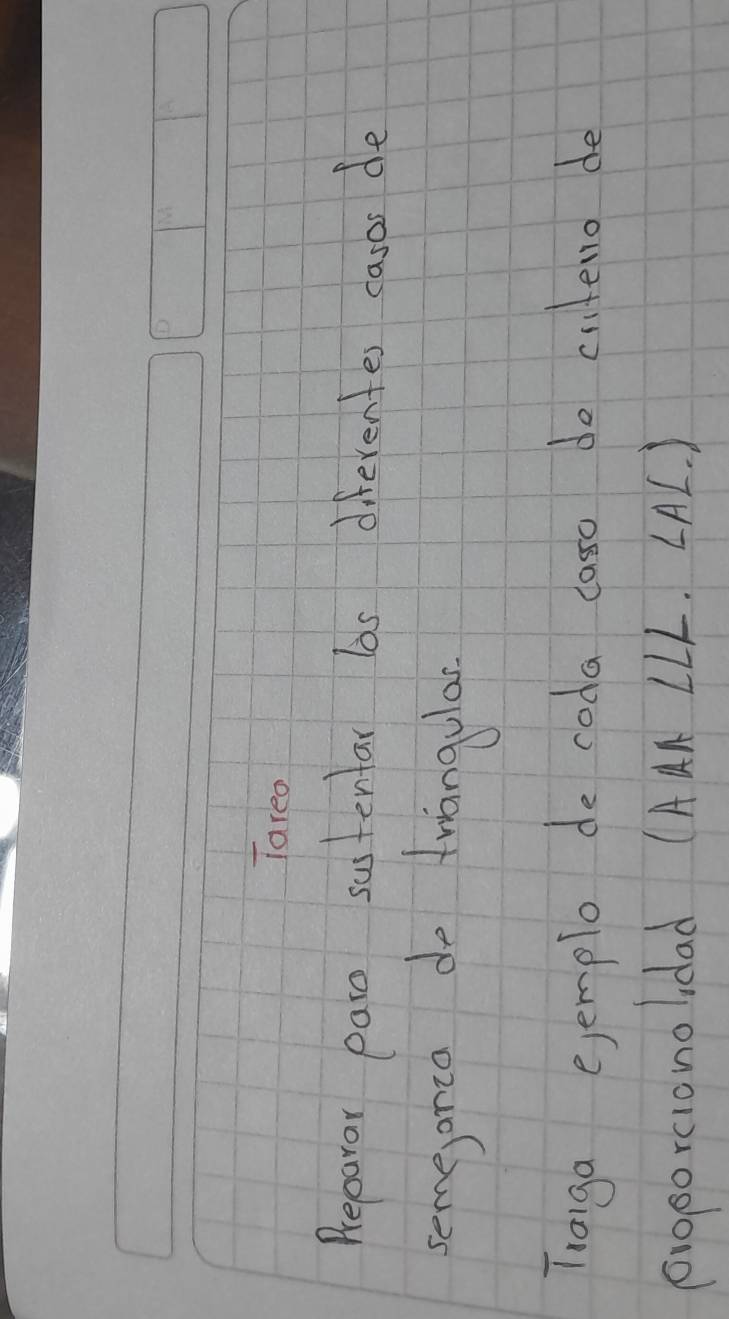 D M A
Tarea
Preparar para sustentar los diferentes casos de
semejanza de triangulos.
Traiga ejemplo de cada caso de criterio de
proporcionalidad (A AA LLL. LAL.)